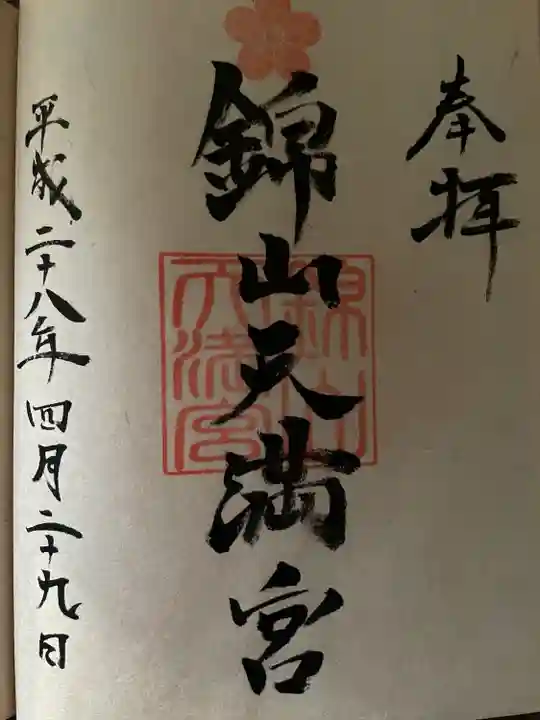 奉拝
錦山天満宮
錦山
天満宮
平成二十八年四月二十九日